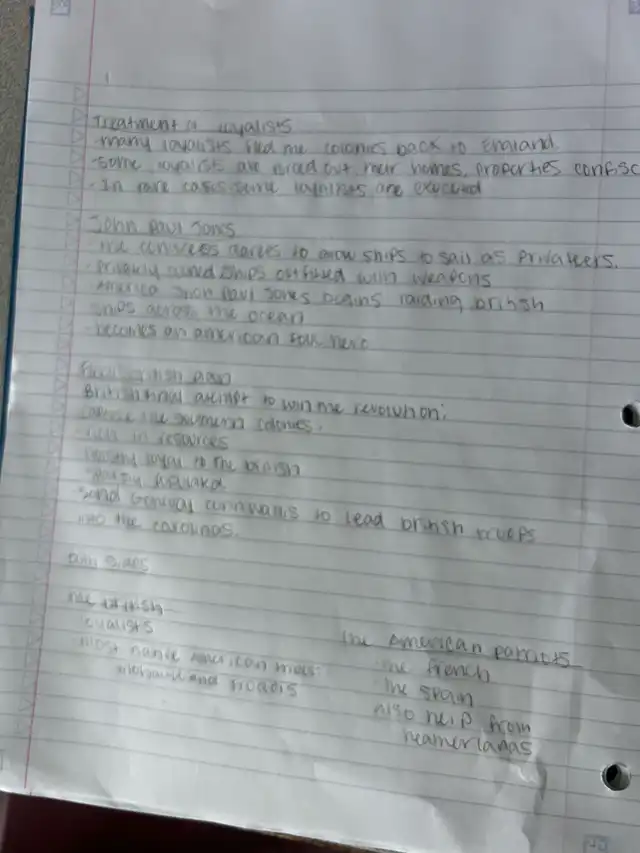 Treatment of loyalists
-many loyalists fled the colonies back to England.
-some loyalist are forced out their homes, properties confisc
-In rare cases some loyalists are executed
John Paul Jones
the congress agrees to allow ships to sail as privateers.
-privately owned ships outfitted with weapons
America John Paul Jones begins raiding british
ships across the ocean
-becomes an american hero
Final british plan
British final attempt to win the revolution:
capture the southern colonies.
-rich in resources
loyal to the british
-send General cornwallis to lead british troops
into the carolinas.
sides
the british
loyalists
most native american tribes
and
the American patriots
the french
the spain
Also help from